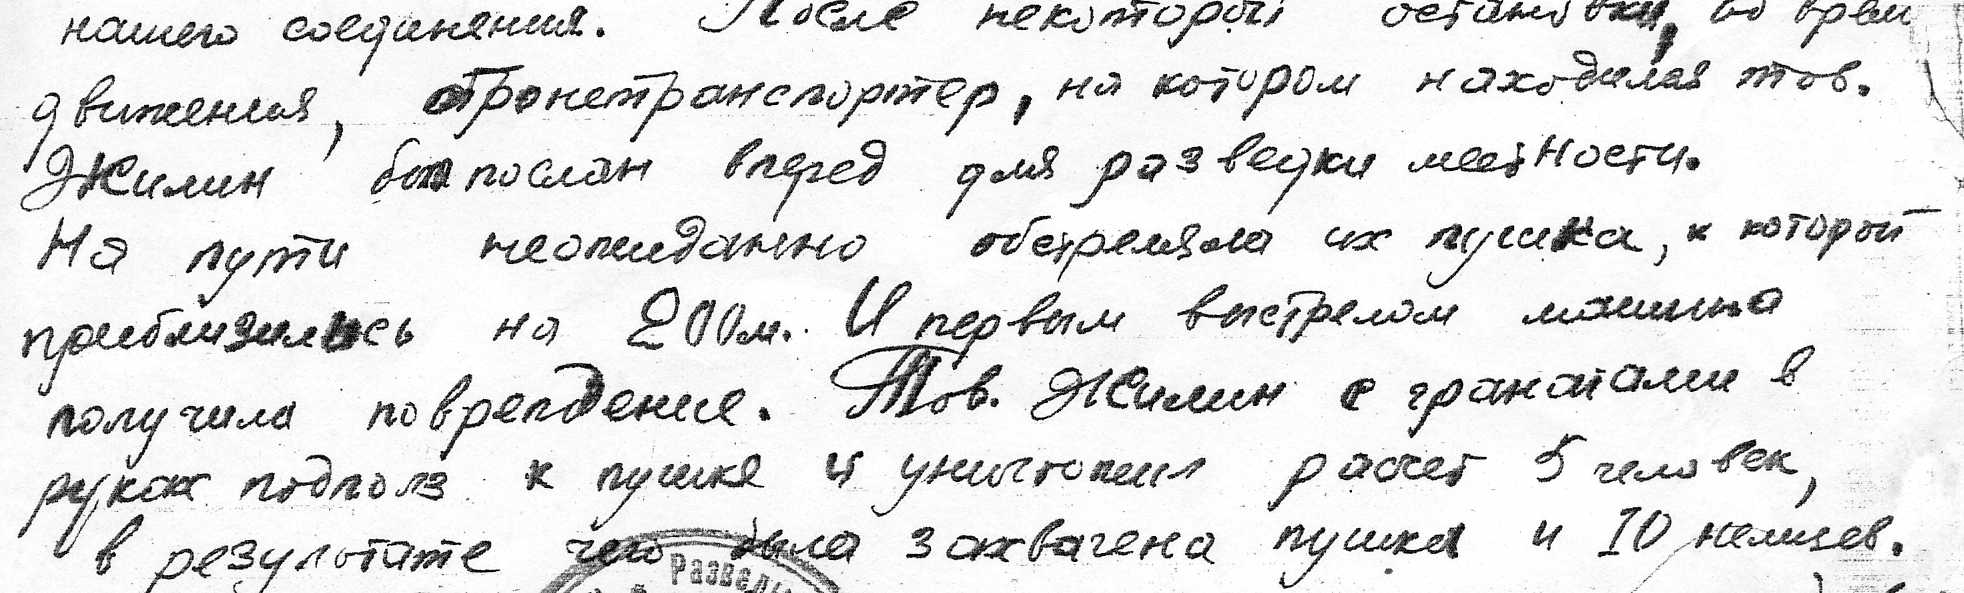 нашего соединения. После некоторой остановки, во врем
движения, бронетранспортер, на котором находился тов.
Жилин был послан вперед для разведки местности.
На пути неожиданно обстреляла их пушка, к которой
приблизились на 200м. И первым выстрелом машина
получила повреждение. Тов. Жилин с гранатами в
руках подполз к пушке и уничтожил расчет 5 человек,
в результате чего была захвачена пушка и 10 немцев.
Развед